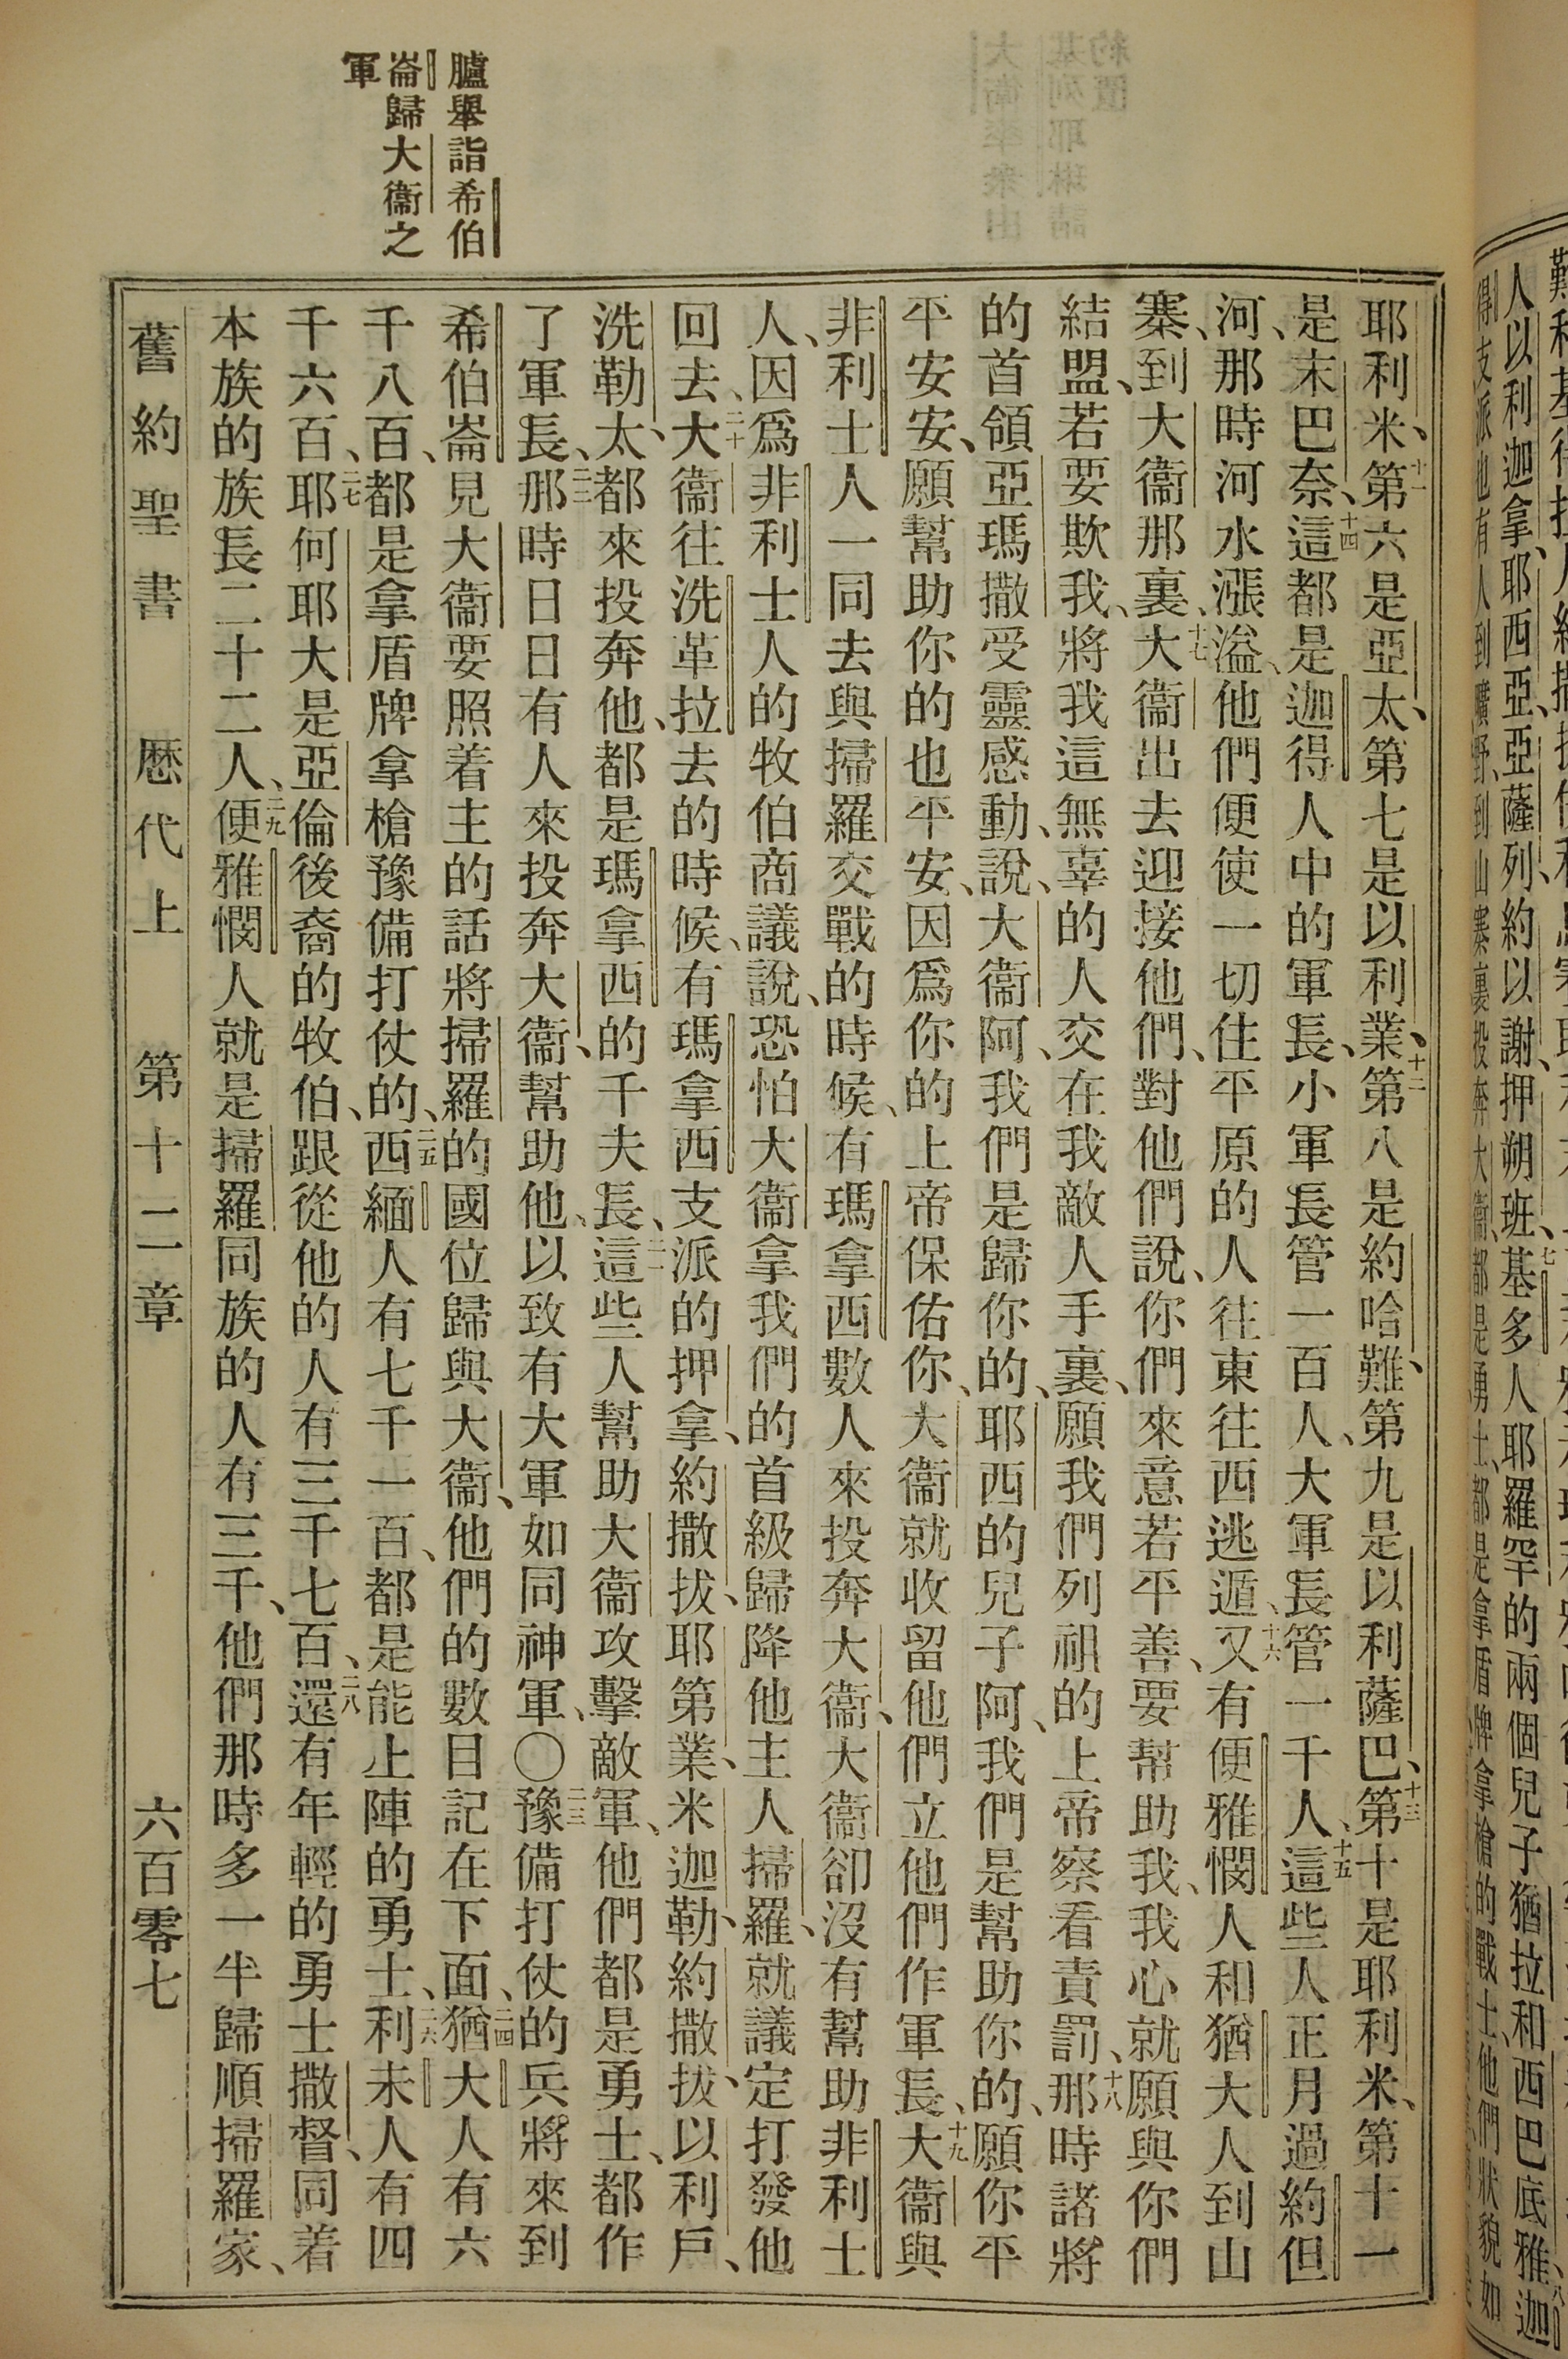 臚舉詣希伯
崙歸大衞之
軍
耶利米、十一第六是亞太、第七是以利業、十二第八是約哈難、第九是以利薩巴、十三第十是耶利米、第十一
是末巴奈、十四這都是迦得人中的軍長、小軍長管一百人、大軍長管一千人、十五這些人正月過約但
河、那時河水漲溢、他們便使一切住平原的人往東往西逃遁、十六又有便雅憫人和猶大人到山
寨、到大衞那裏、十七大衞出去迎接他們、對他們說、你們來意若平善、要幫助我、我心就願與你們
結盟、若要欺我、將我這無辜的人交在我敵人手裏、願我們列祖的上帝察看責罰、十八那時諸將
的首領亞瑪撒受靈感動、說、大衞阿、我們是歸你的、耶西的兒子阿、我們是幫助你的、願你平
平安安、願幫助你的也平安、因爲你的上帝保佑你、大衞就收留他們立他們作軍長、十九大衞與
非利士人一同去與掃羅交戰的時候、有瑪拿西數人來投奔大衞、大衞卻沒有幫助非利士
人、因爲非利士人的牧伯商議說、恐怕大衞拿我們的首級歸降他主人掃羅、就議定打發他
回去、二十大衞往洗革拉去的時候、有瑪拿西支派的押拿、約撒拔、耶第業、米迦勒、約撒拔、以利戶、
洗勒太、都來投奔他、都是瑪拿西的千夫長、二一這些人幫助大衞攻擊敵軍、他們都是勇士、都作
了軍長、二二那時日日有人來投奔大衞、幫助他、以致有大軍如同神軍、〇二三豫備打仗的兵將來到
希伯崙見大衞要照着主的話將掃羅的國位歸與大衞、他們的數目記在下面、二四猶大人有六
千八百、都是拿盾牌拿槍豫備打仗的、二五西緬人有七千一百、都是能上陣的勇士、二六利未人有四
千六百、二七耶何耶大是亞倫後裔的牧伯、跟從他的人有三千七百、二八還有年輕的勇士撒督、同着
本族的族長二十二人、二九便雅憫人就是掃羅同族的人有三千、他們那時多一半歸順掃羅家、
舊約聖書　歷代上　第十二章　六百零七